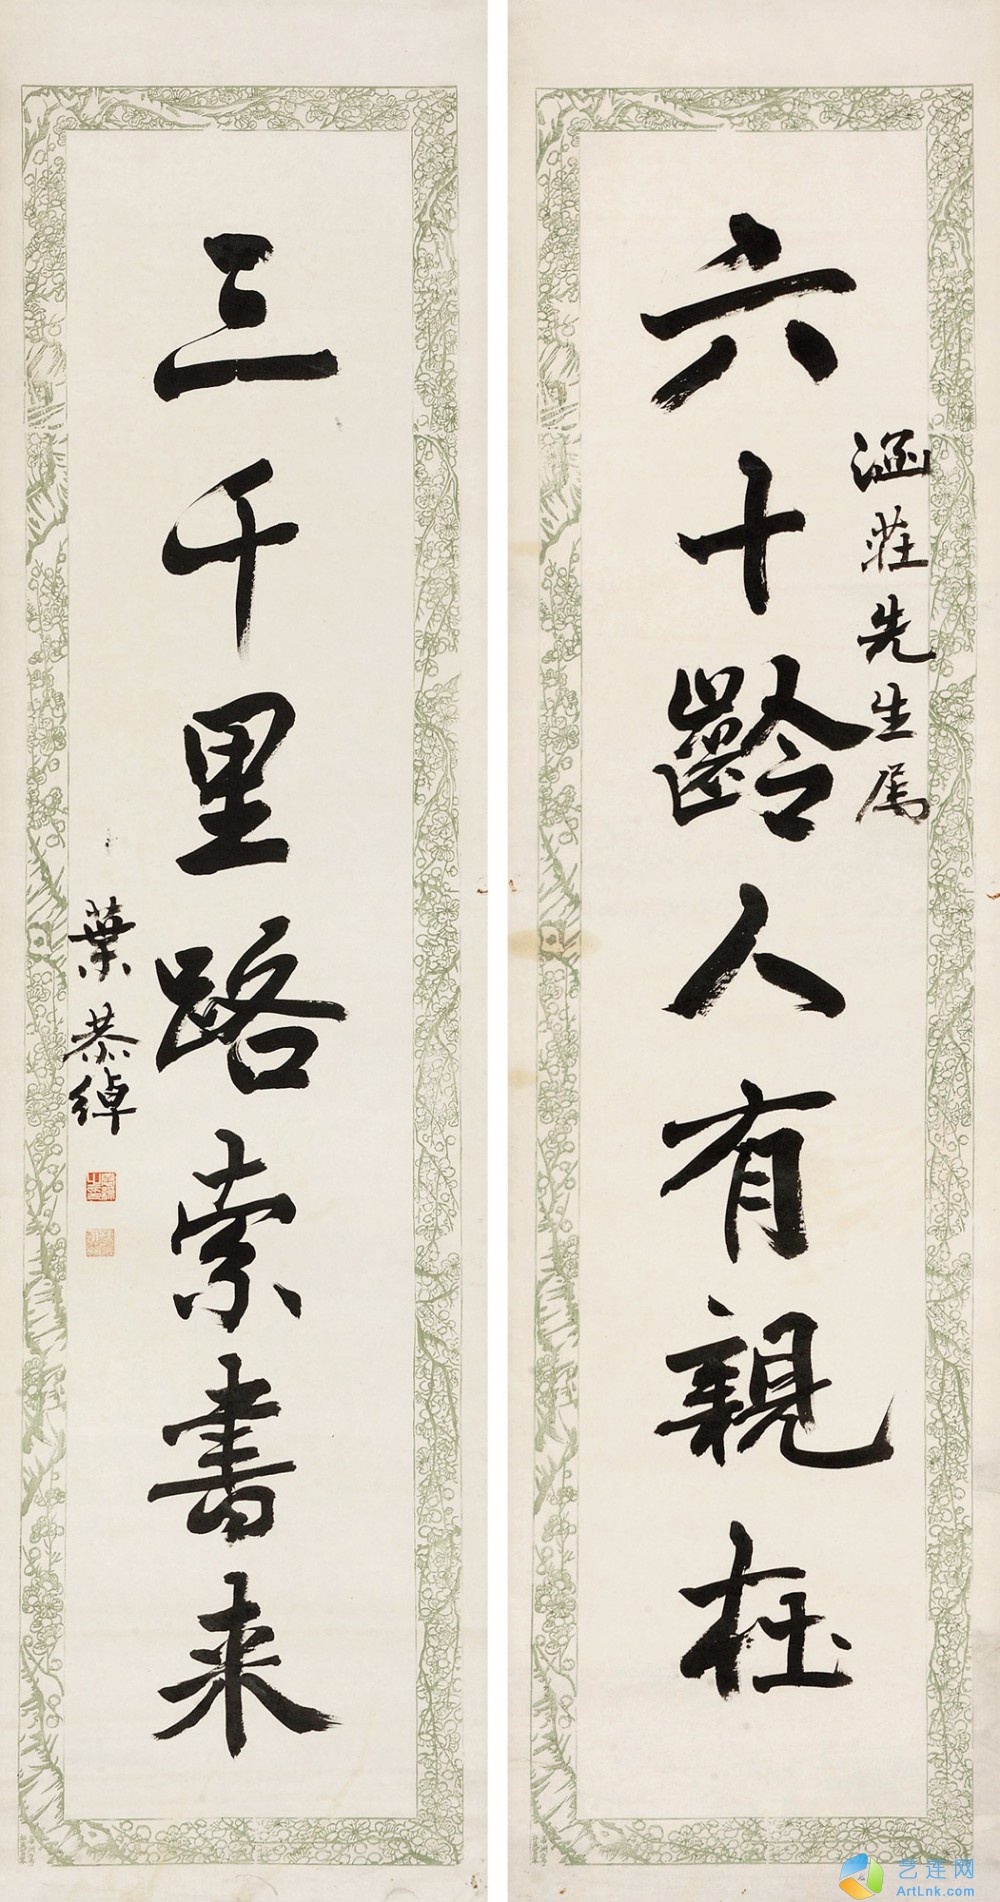 六十齡人有親在
涵莊先生属
三千里路索書来
葉恭綽
艺连网
ArtLnk.com